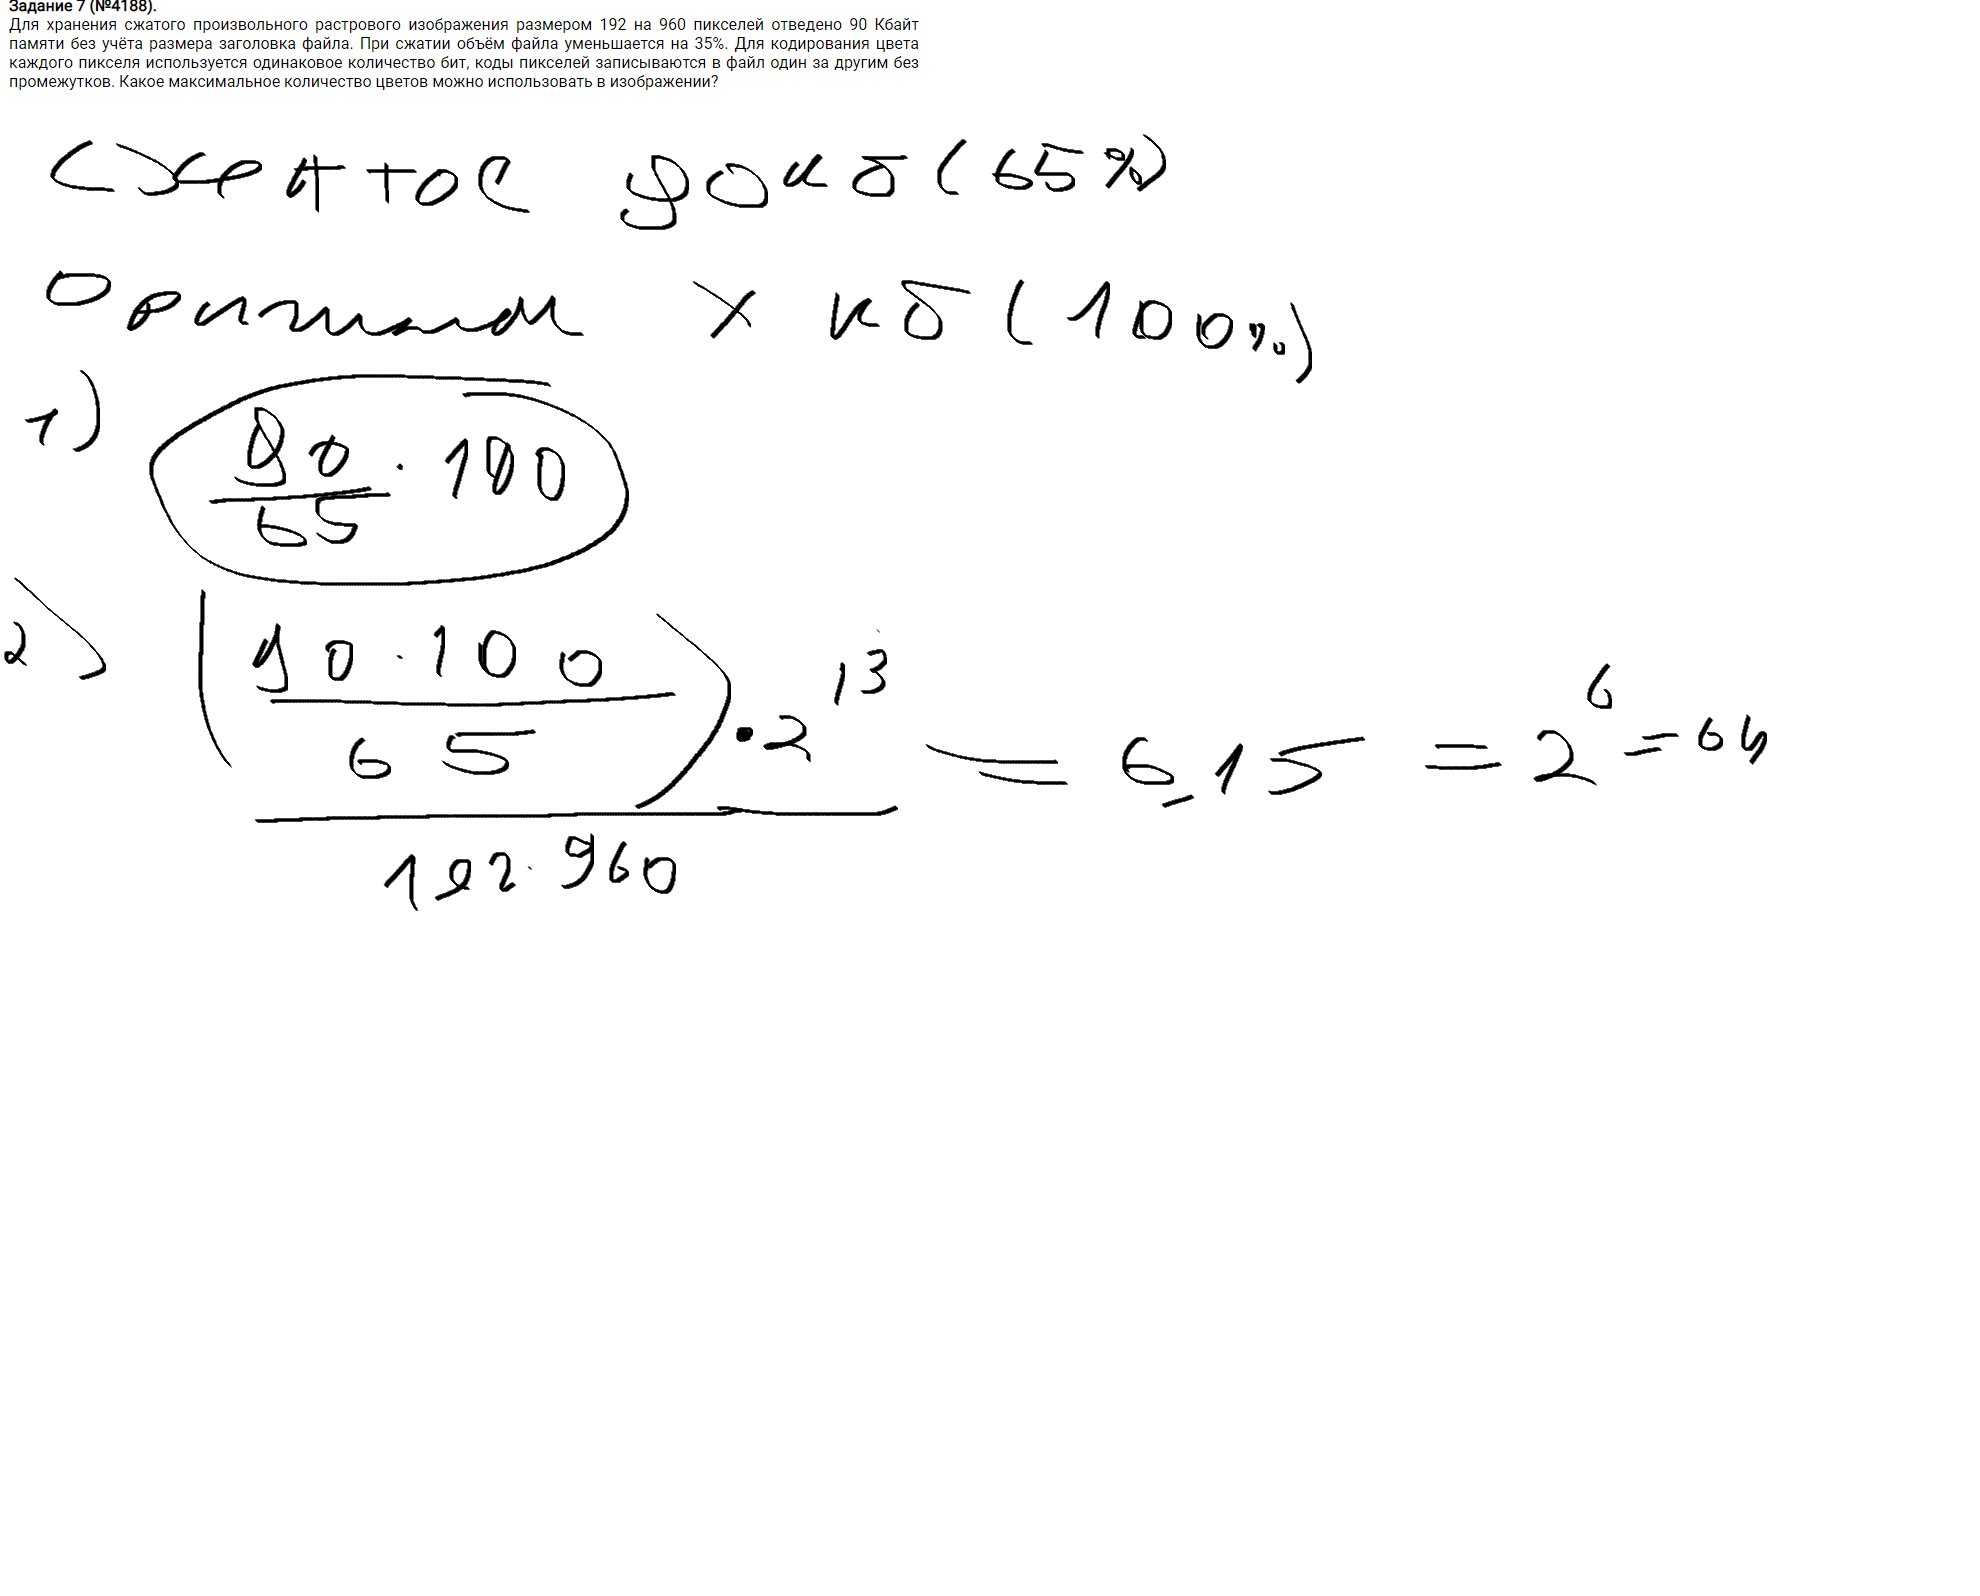 Задание 7 (№4188).
Для хранения сжатого произвольного растрового изображения размером 192 на 960 пикселей отведено 90 Кбайт
памяти без учёта размера заголовка файла. При сжатии объём файла уменьшается на 35%. Для кодирования цвета
каждого пикселя используется одинаковое количество бит, коды пикселей записываются в файл один за другим без
промежутков. Какое максимальное количество цветов можно использовать в изображении?
Сжатое 90 кб (65%)
Оригинал x кб (100%)
1)
90
65
· 100
2)
(90 · 100
65
) · 2^13
192 · 960
= 6,15 = 2^6 = 64